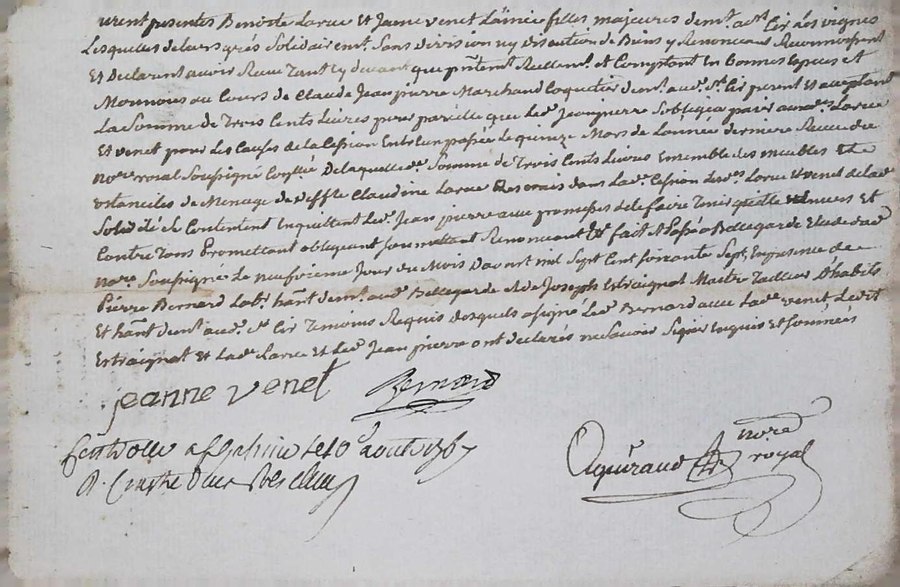 urent presentes Benoite Larue Et Jeanne venet Lainée filles majeures demt. a St. Cir Les vignes
Lesquelles de leurs grés Solidairemt. Sans division ny discution de Biens y Renonceant Reconnoissent
Et declarent avoir Receu tant cy devant que pntement Rellemt. Et Comptant En bonnes Especes et
Monnoies au Cours de Claude Jean pierre Marchand Coquetier demt. aud. St. Cir pnt Et acceptant
La Somme de Trois Cents Livres pour pareille que led. Jeanpierre S'obligea paier auxd. Larue
Et venet pour les Causes de la Cession Entr'eux passée le quinze Mars de L'année derniere Receu du
nore. roial Soussigné De laquelle de. Somme de Trois Cents Livres Ensemble des meubles Et
ustanciles de Menage de deffte Claudine Larue Reservés dans Lad. Cession Lesd. Larue Et venet de lad.
Solidité Se Contentent En quittent led. Jean pierre avec promesses de le faire tenir quitte Envers Et
Contre Tous Promettant obligeant Soumettant Renonceant &c fait Et Passé a Bellegarde Etude dud.
nore. Soussigné Le neufvieme Jour du Mois Daoust mil Sept Cent Soixante Sept En presence de
Pierre Bernard Labr. habt. demt. aud. Bellegarde Et de Joseph Extraignat Maitre Tailleur D'habits
Et habt. demt. aud. St. Cir Temoins Requis desquels a signé led. Bernard avec lad. venet Ledit
Extraignat Et Lad. Larue Et led. Jean pierre ont declarés ne Scavoir Signer Enquis Et Sommés
jeanne venet Bernard
Controllé a St Galmier le 10e aoust 1767
R.
nore
royal